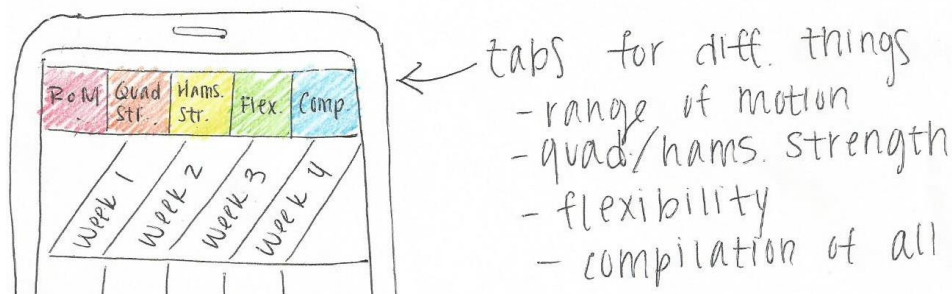 RoM Quad Str. Hams. Str. Flex. Comp.
Week 1 Week 2 Week 3 Week 4
tabs for diff. things
- range of motion
- quad/hams. strength
- flexibility
- compilation of all